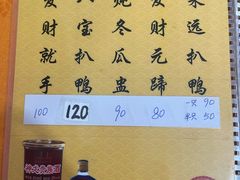 发财就手
宝扒鸭
冬瓜盅
发财元蹄
来远扒鸭
100
120
90
80
一只 90
半只 50